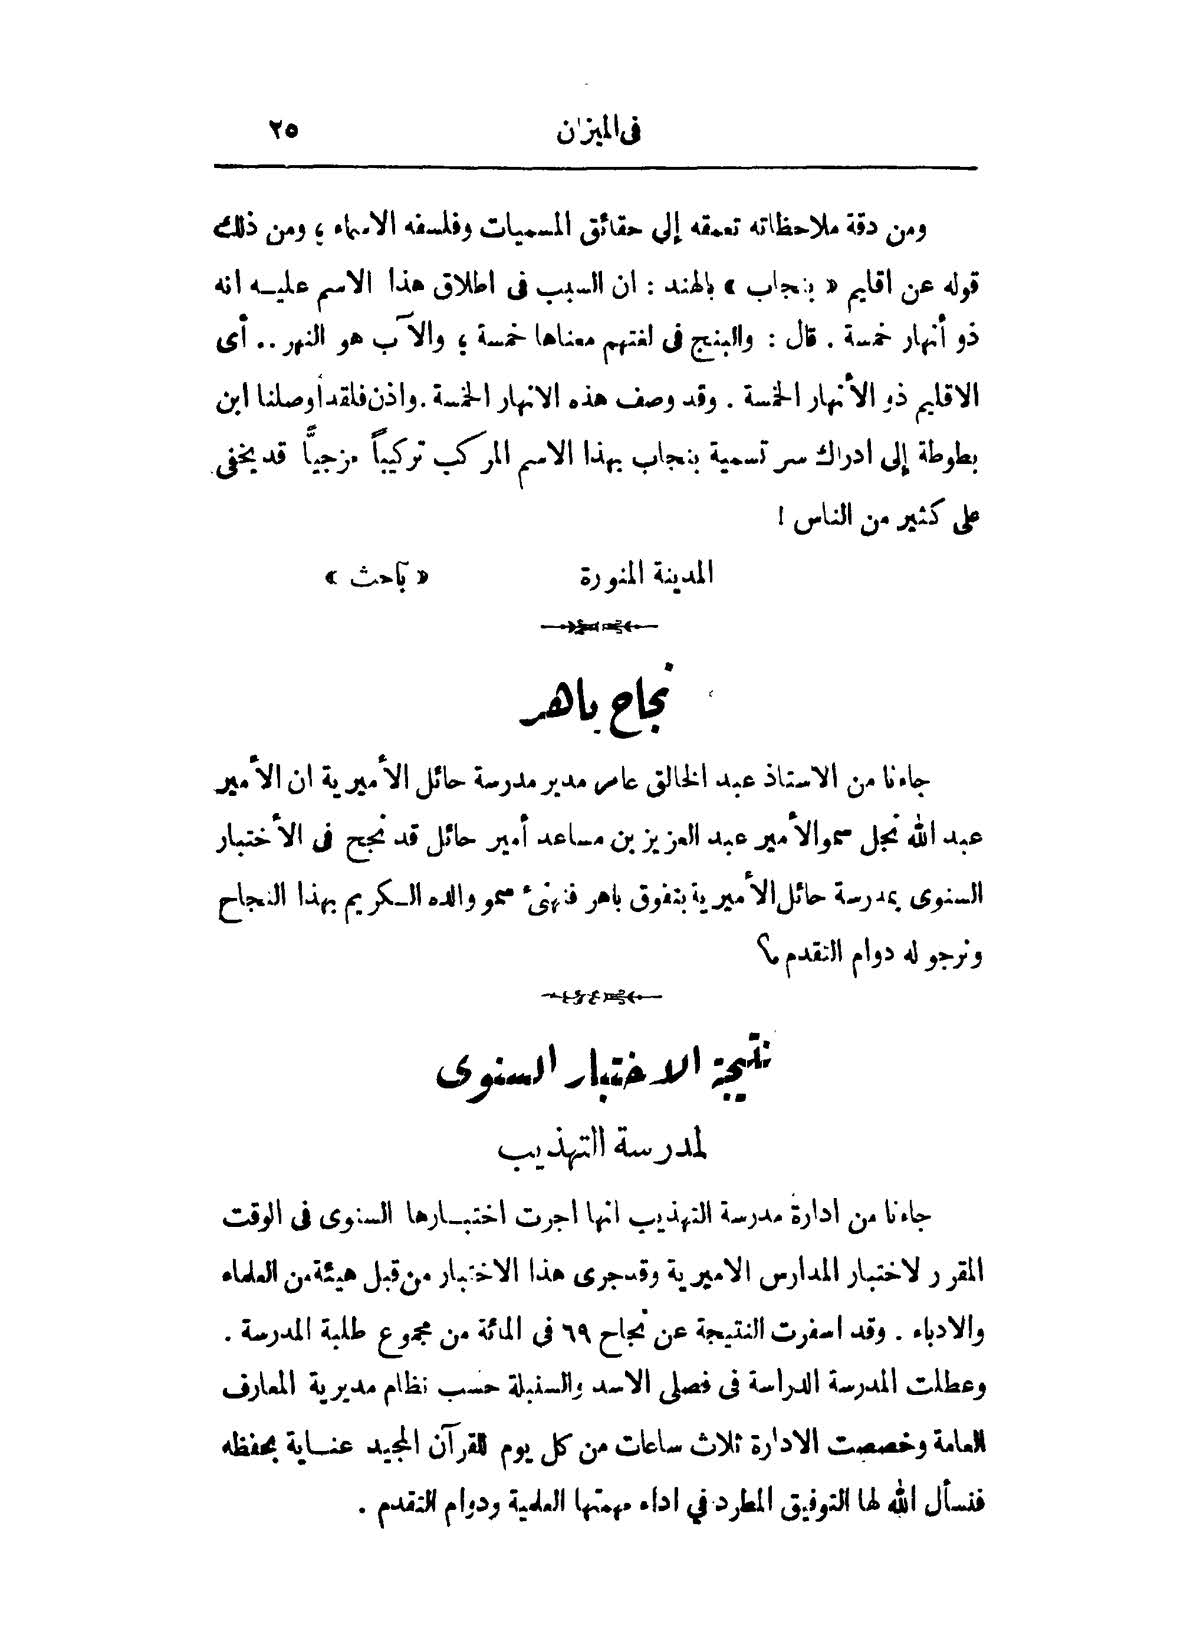 فى الميزان ٢٥
ومن دقة ملاحظاته تعمقه إلى حقائق المسميات وفلسفه الاسماء ؛ ومن ذلك
قوله عن اقليم « بنجاب » بالهند : ان السبب فى اطلاق هذا الاسم عليه انه
ذو أنهار خمسة . قال : والبنج فى لغتهم معناها خمسة ؛ والآب هو النهر .. أى
الاقليم ذو الأنهار الخمسة . وقد وصف هذه الانهار الخمسة . واذن فلقد أوصلنا ابن
بطوطة إلى ادراك سر تسمية بنجاب بهذا الاسم المركب تركيباً مزجياً قد يخفى
على كثير من الناس !
المدينة المنورة « باحث »
نجاح باهر
جاءنا من الاستاذ عبد الخالق عامر مدير مدرسة حائل الأميرية ان الأمير
عبد الله نجل سمو الأمير عبد العزيز بن مساعد أمير حائل قد نجح فى الأختبار
السنوى بمدرسة حائل الأميرية بتفوق باهر فنهنىء سمو والده الكريم بهذا النجاح
ونرجو له دوام التقدم ؟
نتيجة الاختبار السنوى
لمدرسة التهذيب
جاءنا من ادارة مدرسة التهذيب انها اجرت اختبارها السنوى فى الوقت
المقرر لاختبار المدارس الاميرية وقد جرى هذا الاختبار من قبل هيئة من العلماء
والادباء . وقد اسفرت النتيجة عن نجاح ٦٩ فى المائة من مجموع طلبة المدرسة .
وعطلت المدرسة الدراسة فى فصلى الاسد والسنبلة حسب نظام مديرية المعارف
العامة وخصصت الادارة ثلاث ساعات من كل يوم للقرآن المجيد عناية بحفظه
فنسأل الله لها التوفيق المطرد في اداء مهمتها العلمية ودوام التقدم .